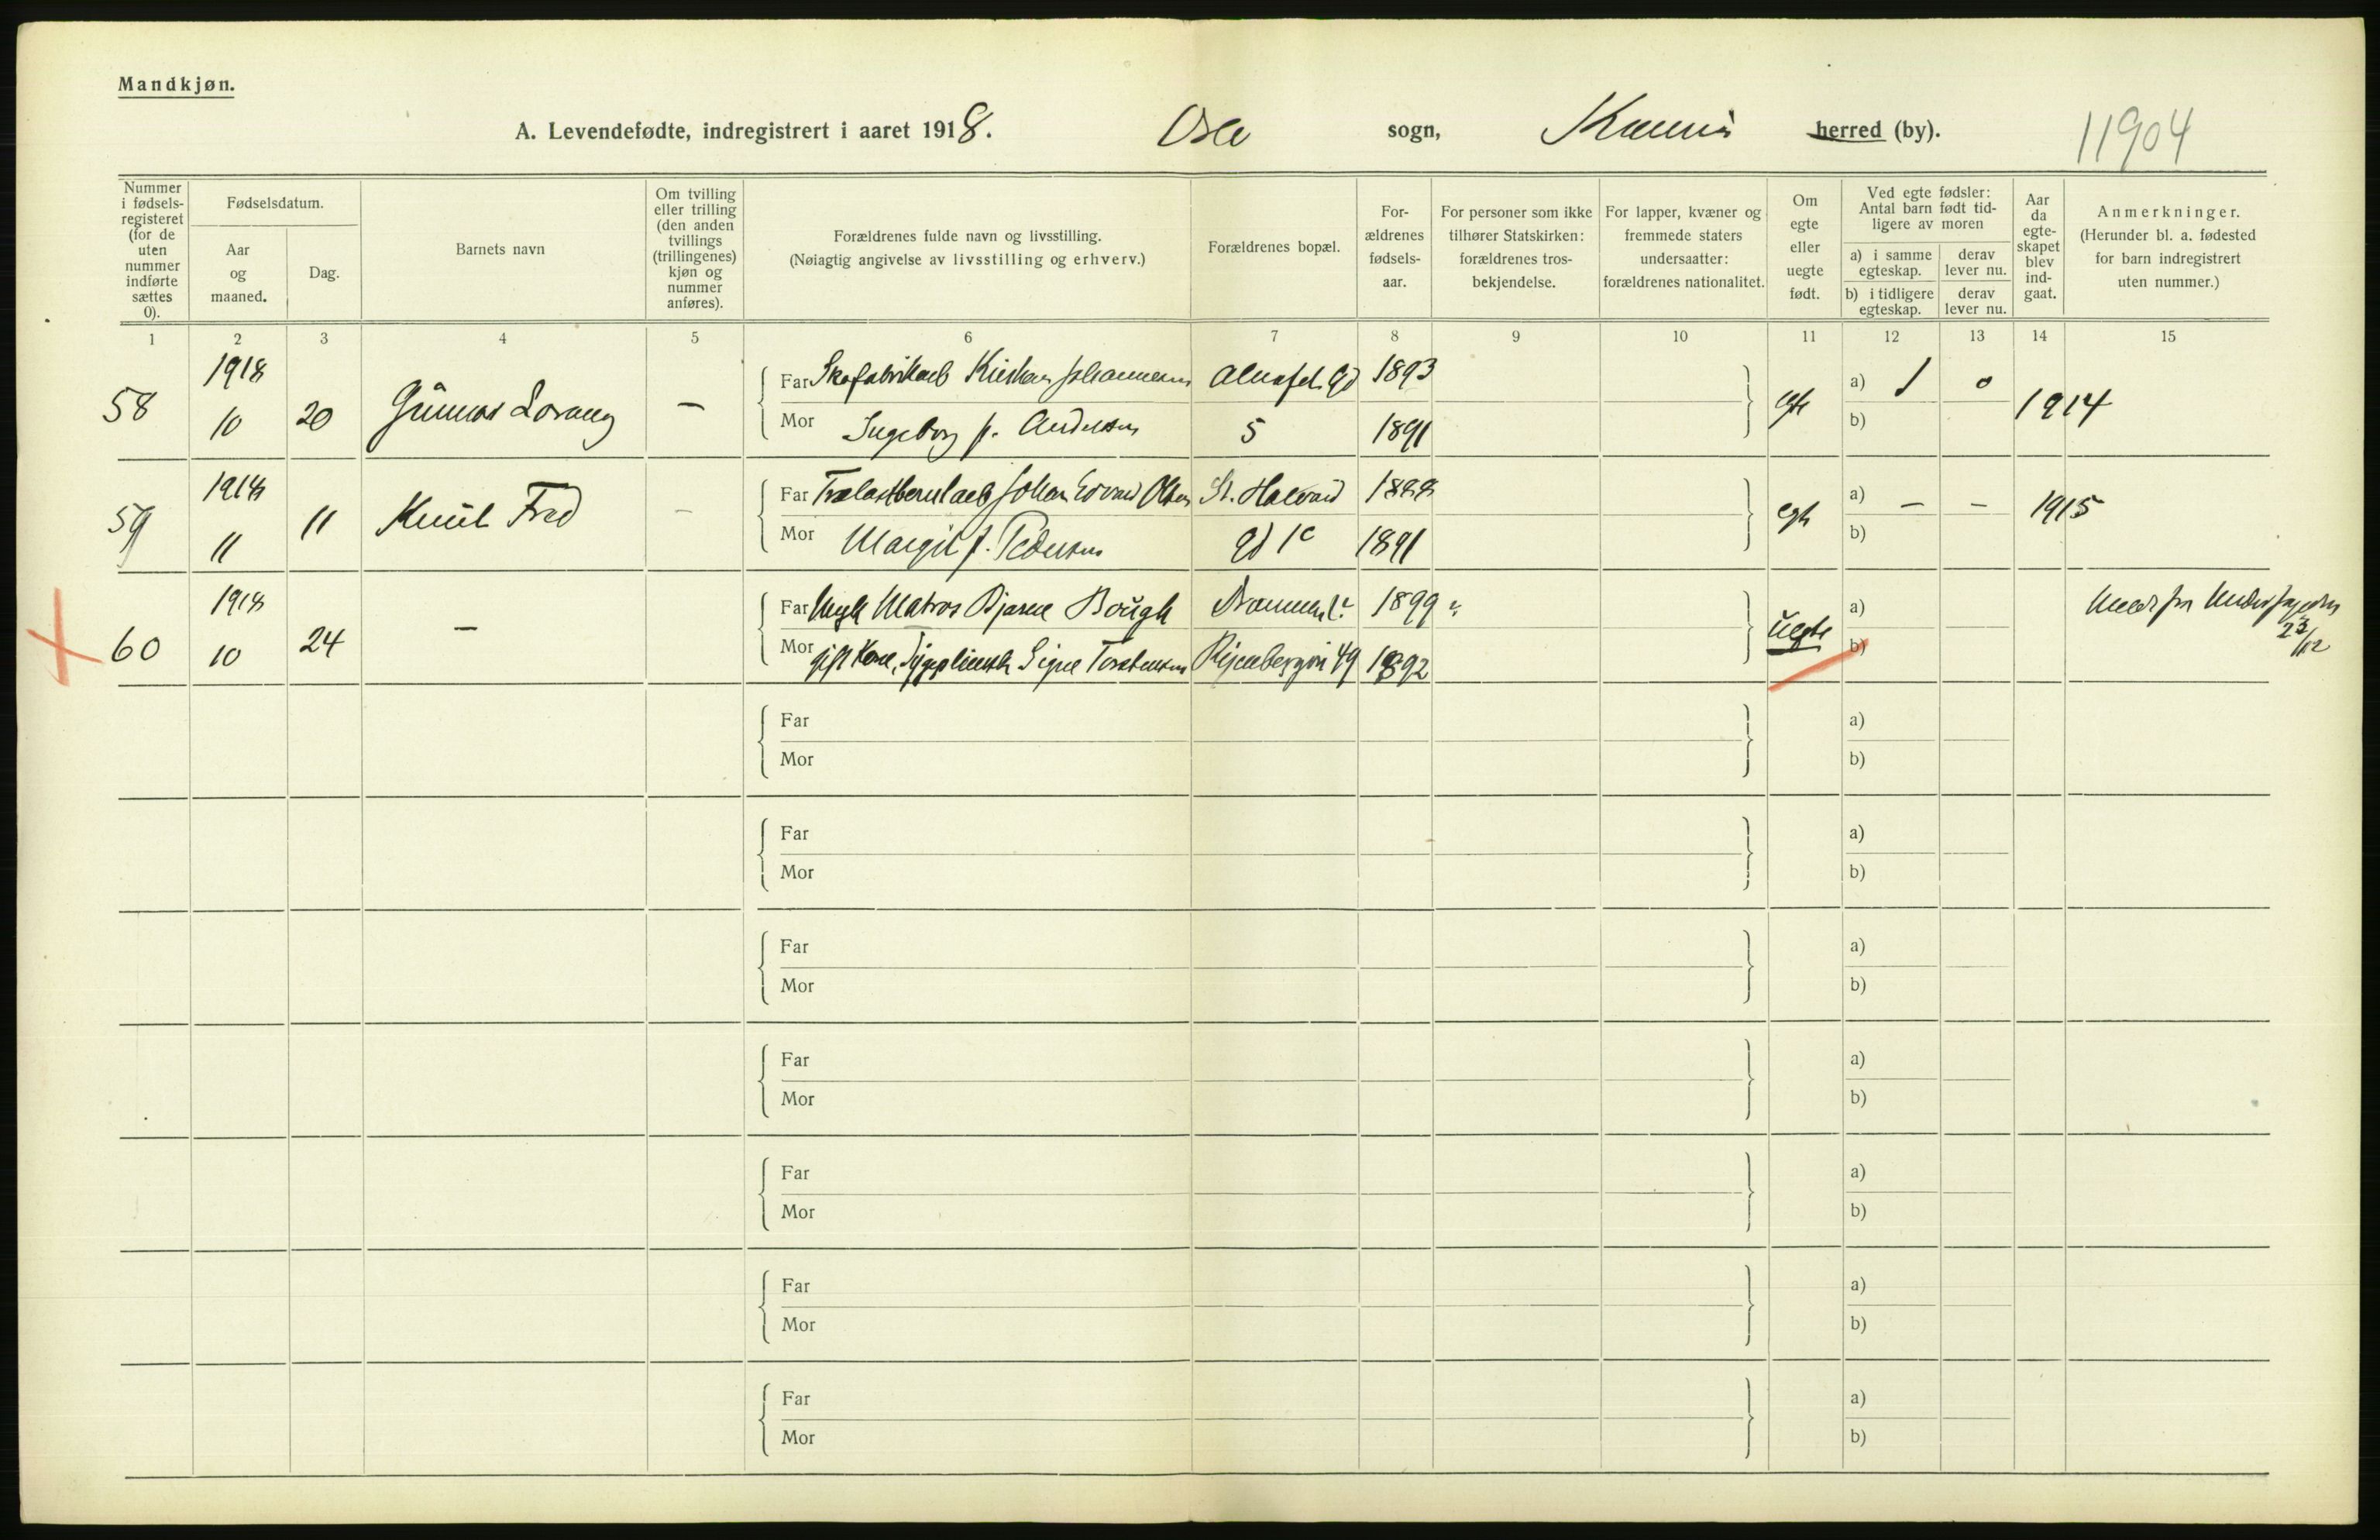 Mandkjøn.
A. Levendefødte, indregistrert i aaret 1918. Oslo sogn, herred (by). 11904
Nummer i fødselsregisteret (for de uten nummer indførte sættes 0).
Fødselsdatum.
Aar og maaned.
Dag.
Barnets navn
Om tvilling eller trilling (den anden tvillings (trillingenes) kjøn og nummer anføres).
Forældrenes fulde navn og livsstilling.
(Nøiagtig angivelse av livsstilling og erhverv.)
Forældrenes bopæl.
Forældrenes fødselsaar.
For personer som ikke tilhører Statskirken: forældrenes trosbekjendelse.
For lapper, kvæner og fremmede staters undersaatter: forældrenes nationalitet.
Om egte eller uegte født.
Ved egte fødsler: Antal barn født tidligere av moren
a) i samme egteskap.
derav lever nu.
b) i tidligere egteskap.
derav lever nu.
Aar da egteskapet blev indgaat.
Anmerkninger.
(Herunder bl. a. fødested for barn indregistrert uten nummer.)
1 2 3 4 5 6 7 8 9 10 11 12 13 14 15
58 1918 10 20 Gunnar Lorang — Far Kristian Johannessen 1893 egte a) 1 0 1914
Mor Ingeborg f. Andersen 5 1891 b)
59 1918 11 11 Knut Fred – Far Johan Edvard Olsen St. Halvard 1888 egte a) – – 1915
Mor Margit f. Pedersen gd 1c 1891 b)
60 1918 10 24 – Far Ungk Matros Bjarne Bough 1899 uegte a)
Mor gift Kone, Signe Torstensen 49 1892 b) 23/12
Far a)
Mor b)
Far a)
Mor b)
Far a)
Mor b)
Far a)
Mor b)
Far a)
Mor b)
Far a)
Mor b)
Far a)
Mor b)